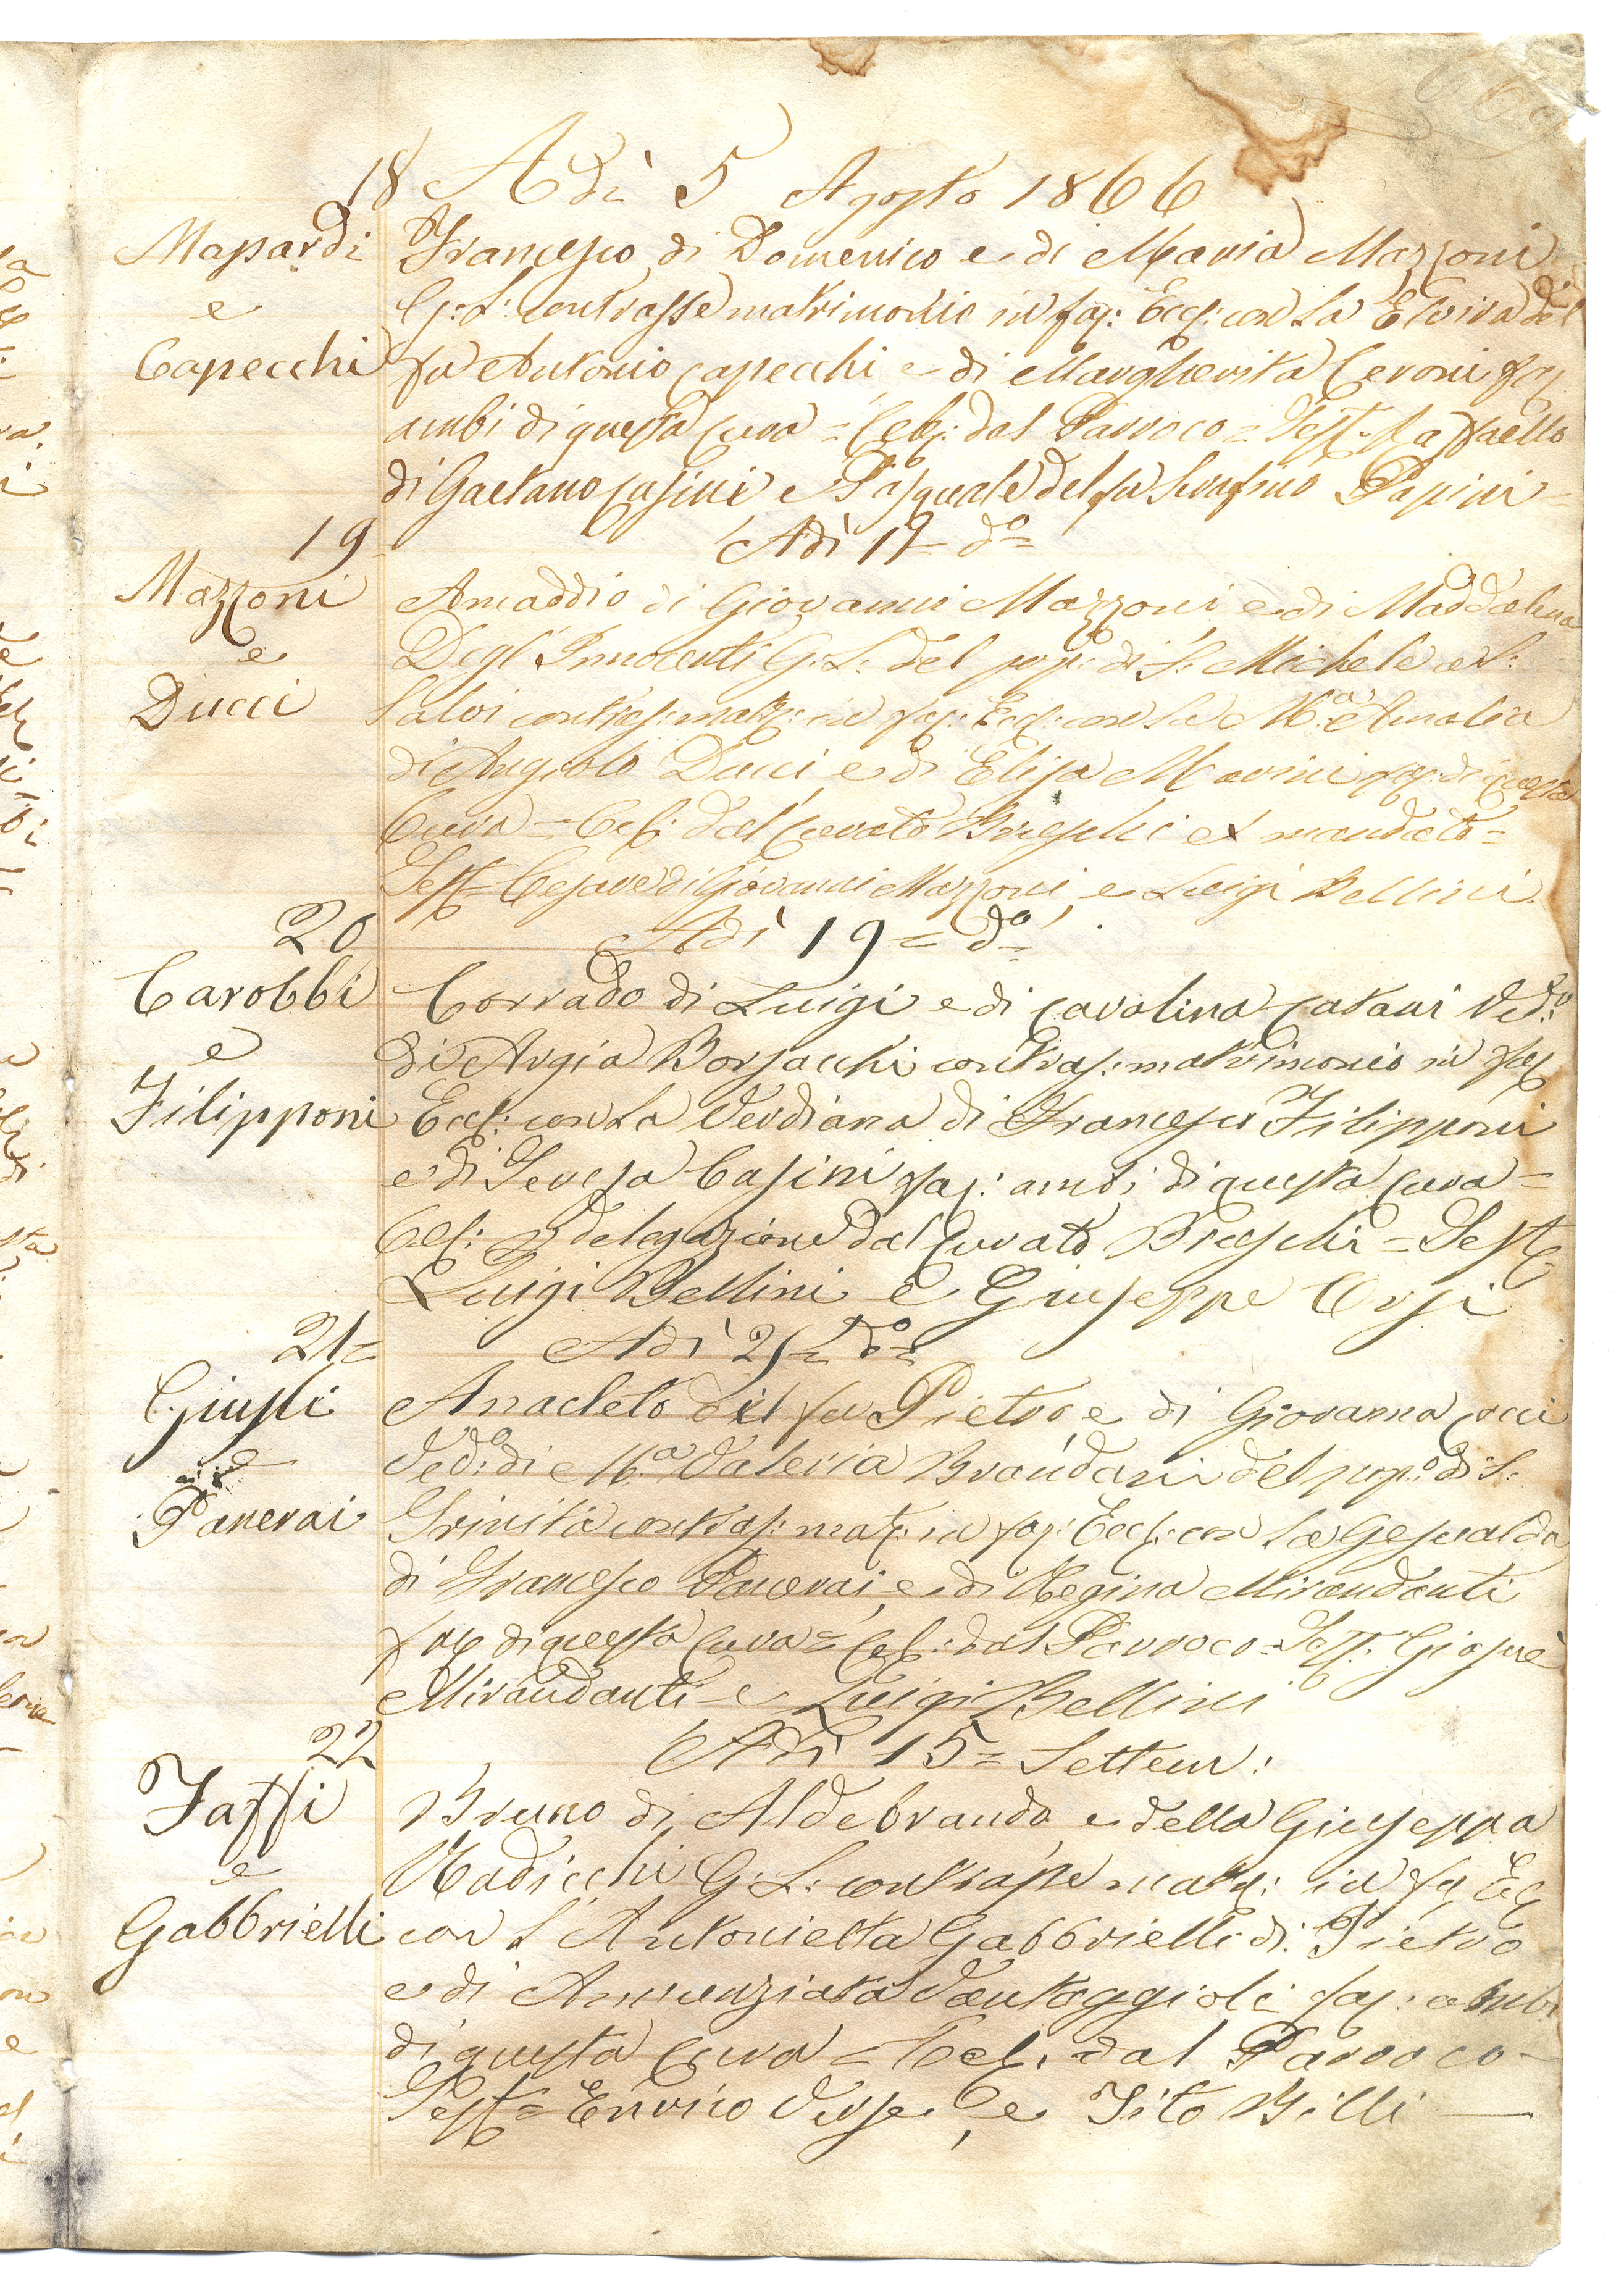 18 Adì 5 Agosto 1866
Massardi Francesco di Domenico e di Maria Mazzoni
e G: L: contrasse matrimonio in fac: Eccl: con la Elvira del
Capecchi fu Antonio Capecchi e di Margherita Ceroni
ambi di questa Cura = Cel: dal Parroco = Test: Raffaello
di Gaetano Casini e Pasquale del fu Serafino Papini =
19 Adì 17 = do =
Mazzoni Amaddio di Giovanni Mazzoni e di Maddalena
e Degl'Innocenti G: L: del pop: di S: Michele a S:
Ducci Salvi contras: matr: in fac: Eccl: con la Ma: Amalia
di Angiolo Ducci e di Elisa Marini di questa
Cura = Cel: dal Curato Breschi ex mandato =
Test = Cesare di Giovanni Mazzoni e Luigi Bellini
20 Adì 19 = do =
Carobbi Corrado di Luigi e di Carolina Catani Vedo:
e di Argia Borsacchi contras: matrimonio in fac
Filipponi Eccl: con la Verdiana di Francesco Filipponi
e di Teresa Casini ambi di questa Cura =
Cel: delegazione dal Curato Breschi = Test
Luigi Bellini e Giuseppe Orsi
21 = Adì 21 = do =
Giusti Anacleto del fu Pietro, e di Giovanna Cocci
e Vedo: di Ma Valeria Brandani del popo: di S:
Panerai Trinita contras: mat: in fac: Eccl: con la Gesualda
di Francesco Panerai, e di Regina Mirandanti
di questa Cura = Cel: dal Parroco = Test: Giosuè
Mirandanti e Luigi Bellini
22 Adì 15 = Settem:
Taffi Bruno di Aldebrando e della Giuseppa
e Radicchi G: L: contrasse matr: in fac Eccl
Gabbrielli con l'Antonietta Gabbrielli di Pietro
e di Annunziata Vantaggioli ambi
di questa Cura = Cel: dal Parroco =
Test = Enrico e Tito Billi